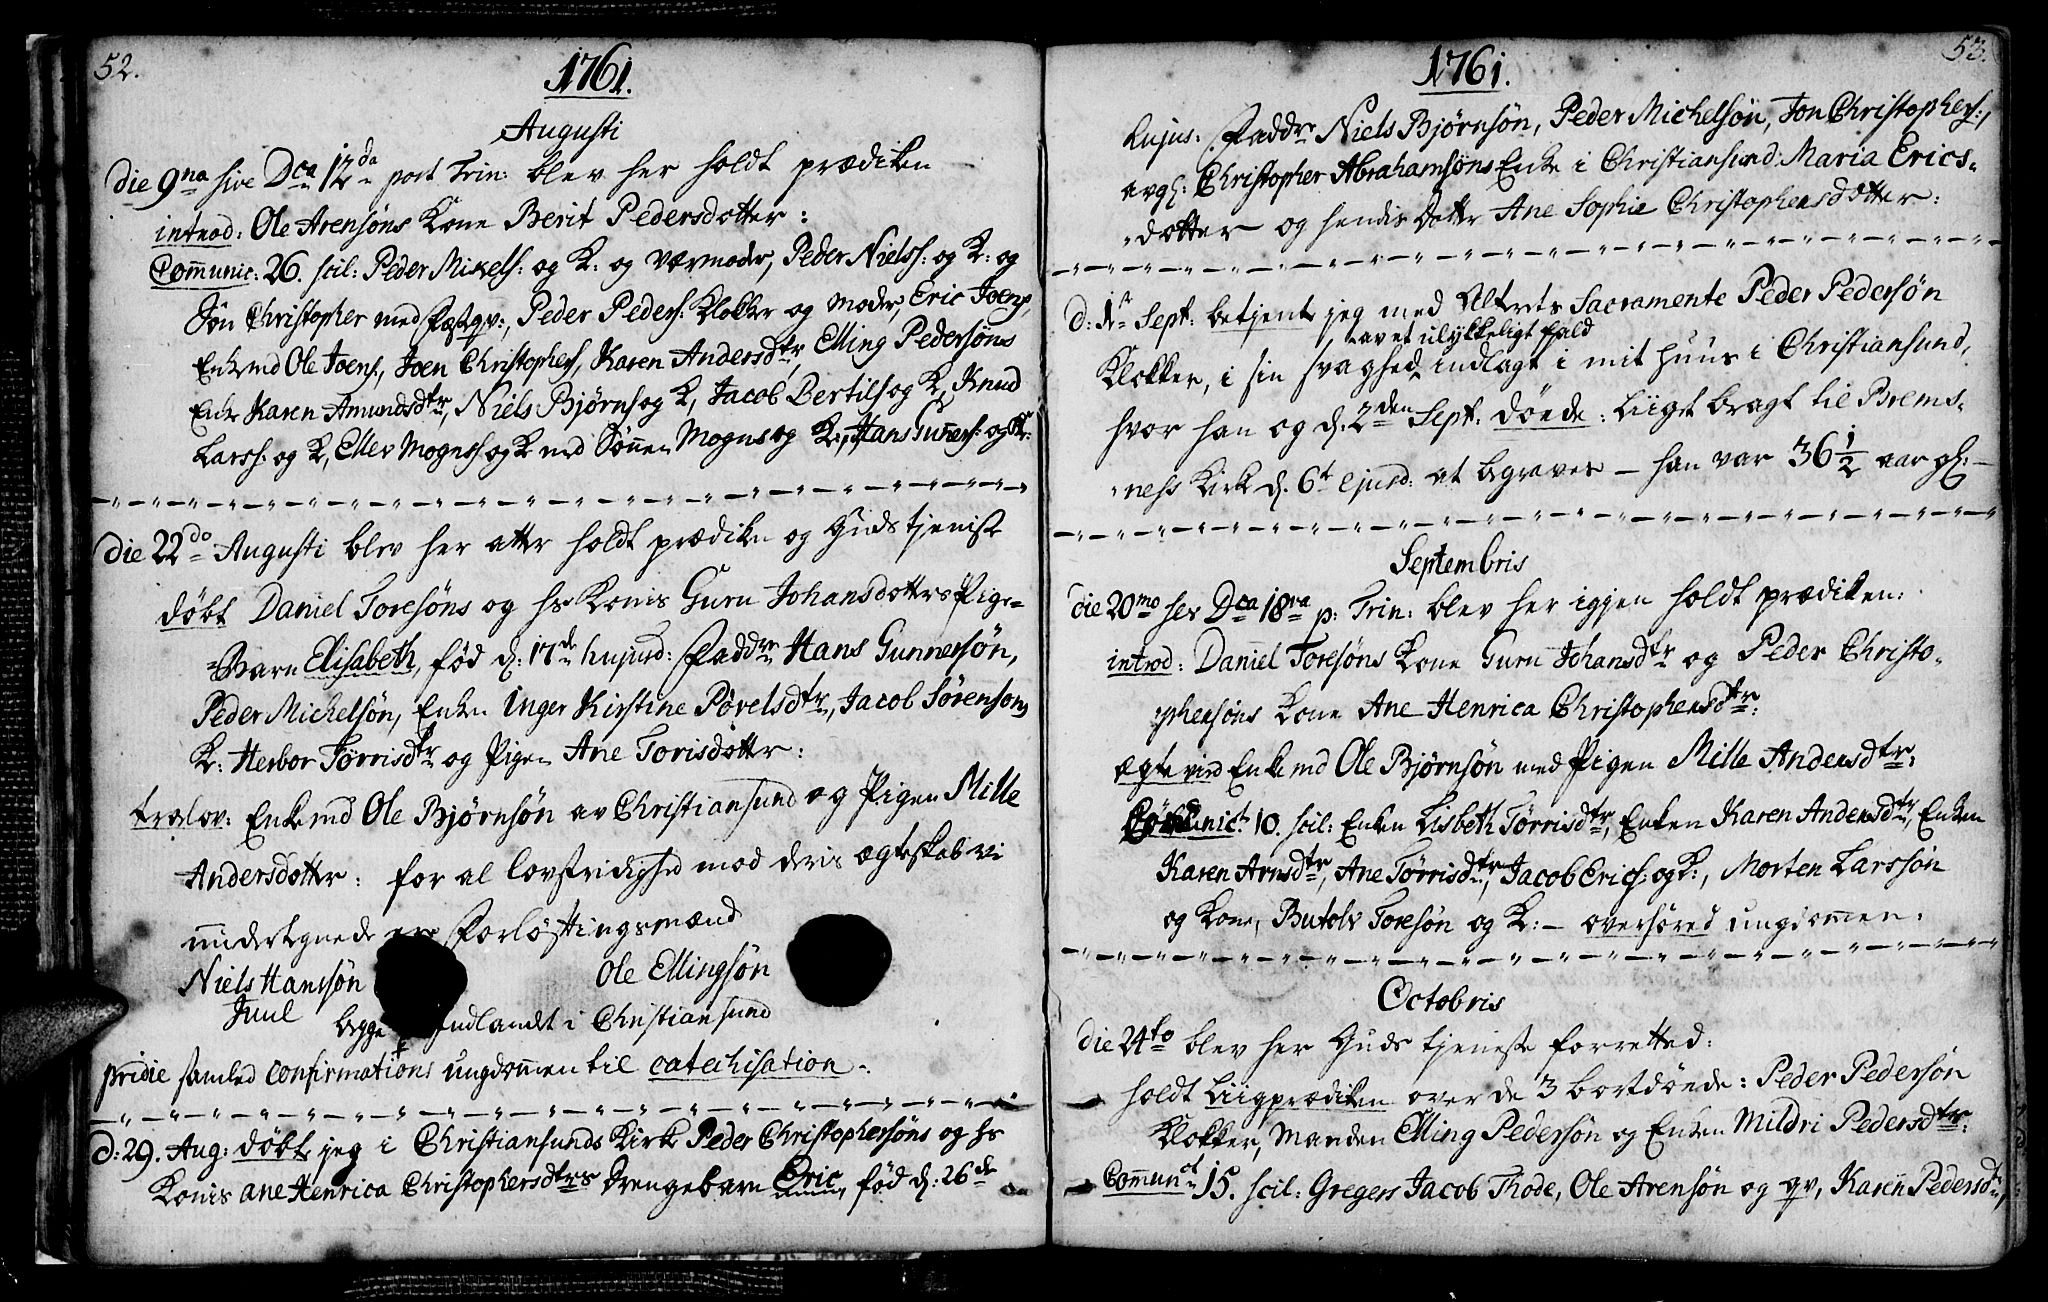 52.
1761.
Augusti
die 9na sive Dca 12da post Trin: blev her holdt prædiken
introd: Ole Arensøns Kone Berit Pedersdotter:
Com̅unic: 26. scil: Peder Mikels: og K: og værmoder, Peder Niels: og K: og
Søn Christopher med Fæstqv:, Peder Peders: Klokker og moder, Eric Joens,
Enkemd Ole Joens, Joen Christophers, Karen Andersdtr, Elling Pedersøns
Enke Karen Amundsdtr, Niels Bjørns og K, Jacob Bertils og K, Knud
Larss: og K, Ellev Mogns og K med Søn̅en Mogns og K:, Hans Gun̅ers: og K:
die 22do Augusti blev her atter holdt prædiken og Guds tjeniste
døbt Daniel Toresøns og hs Konis Guru Johansdotters Pige-
Barn Elisabeth, fød d: 17de hujusd: Faddre Hans Gunnersøn,
Peder Michelsøn, Enken Inger Kirstine Povelsdtr, Jacob Sørensøns
K: Herbor Tørrisdtr og Pigen Ane Torisdotter:
trolov: Enkemd Ole Bjørnsøn av Christiansund og Pigen Mille
Andersdotter: for al lovstridighed mod deris ægteskab vi
underskrevne er Forløftingsmænd
Niels Hansøn Ole Ellingsøn
Juul
begge Indlandet i Christiansund
pridie samled confirmations ungdom̅en til catechisation.
d: 29. Aug: døbt jeg i Christiansunds Kirke Peder Christophersøns og hs
Konis ane Henrica Christophersdtrs Drengebarn Eric, fød d: 26de
53.
1761.
hujus: Faddre Niels Bjørnsøn, Peder Michelsøn, Jon Christophers:,
avgl: Christopher Abrahamsøns Enke i Christiansund: Maria Erics-
dotter og hendis Dotter Ane Sophie Christophersdotter:
d: 1st Sept: betjente jeg med Alterets Sacramente Peder Pedersøn
av et ulykkeligt Fald
Klokker, i sin svaghed, indlagt i mit Huus i Christiansund,
hvor han og d: 2den Sept: døede: Liiget bragt til Brems-
ness Kirke d: 6t ejusd: at begraves – han var 36 1/2 aar gl: –
Septembris
die 20mo sev Dca 18va p: Trin: blev her igjen holdt prædiken:
introd: Daniel Toresøns Kone Guru Johansdtr og Peder Christo-
phersøns Kone Ane Henrica Christophersdtr:
ægte vied Enkemd Ole Bjørnsøn med Pigen Mille Andersdtr:
Com̅unict. 10. scil: Enken Lisbeth Tørrisdtr, Enken Karen Andersdtr, Enken
Karen Arnsdtr, Ane Tørrisdtr, Jacob Erics: og K:, Morten Larssøn
og Kone, Butolv Toresøn og K: – overhøred ungdom̅en:
Octobris
die 24to blev her Guds tjeniste forretted:
holdt Liigprædiken over de 3 bortdøde: Peder Pedersøn
Klokker, Manden Elling Pedersøn og Enken Mildri Pedersdtr
Commun ct 15. scil: Gregers Jacob Thode, Ole Arensøn og qv, Karen Pedersdtr,